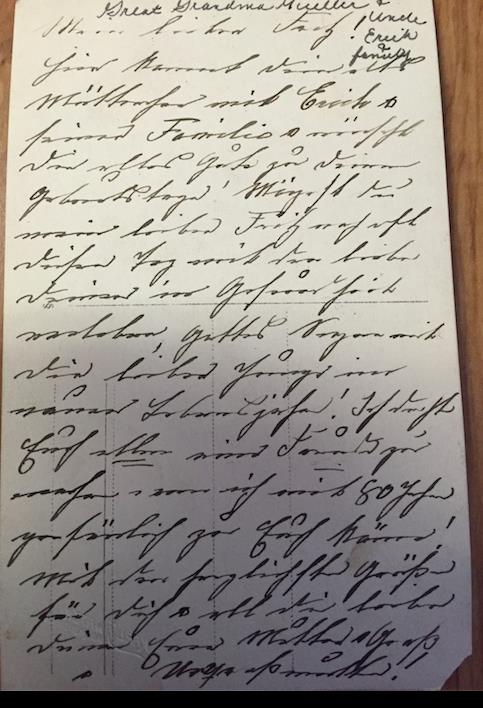 Great Grandma Mueller &
Uncle
Erich
family
Mein lieber Fritz!
Hier kommt dein altes
Mütterchen mit Erich &
seiner Familie & wünscht
Dir alles Gute zu deinem
Geburtstage! Mögest du
mein lieber Fritz noch oft
diesen Tag mit den lieben
Deinen in Gesundheit
verleben, Gottes Segen mit
dir lieber Junge im
neuen Lebensjahre! Ich dachte
Euch allen eine Freude zu
machen, wenn ich mit 80 Jahren
persönlich zu Euch käme!
Mit den herzlichsten Grüßen
für Dich & all die lieben
Deinen Eure Mutter & Groß
& Urgroßmutter!